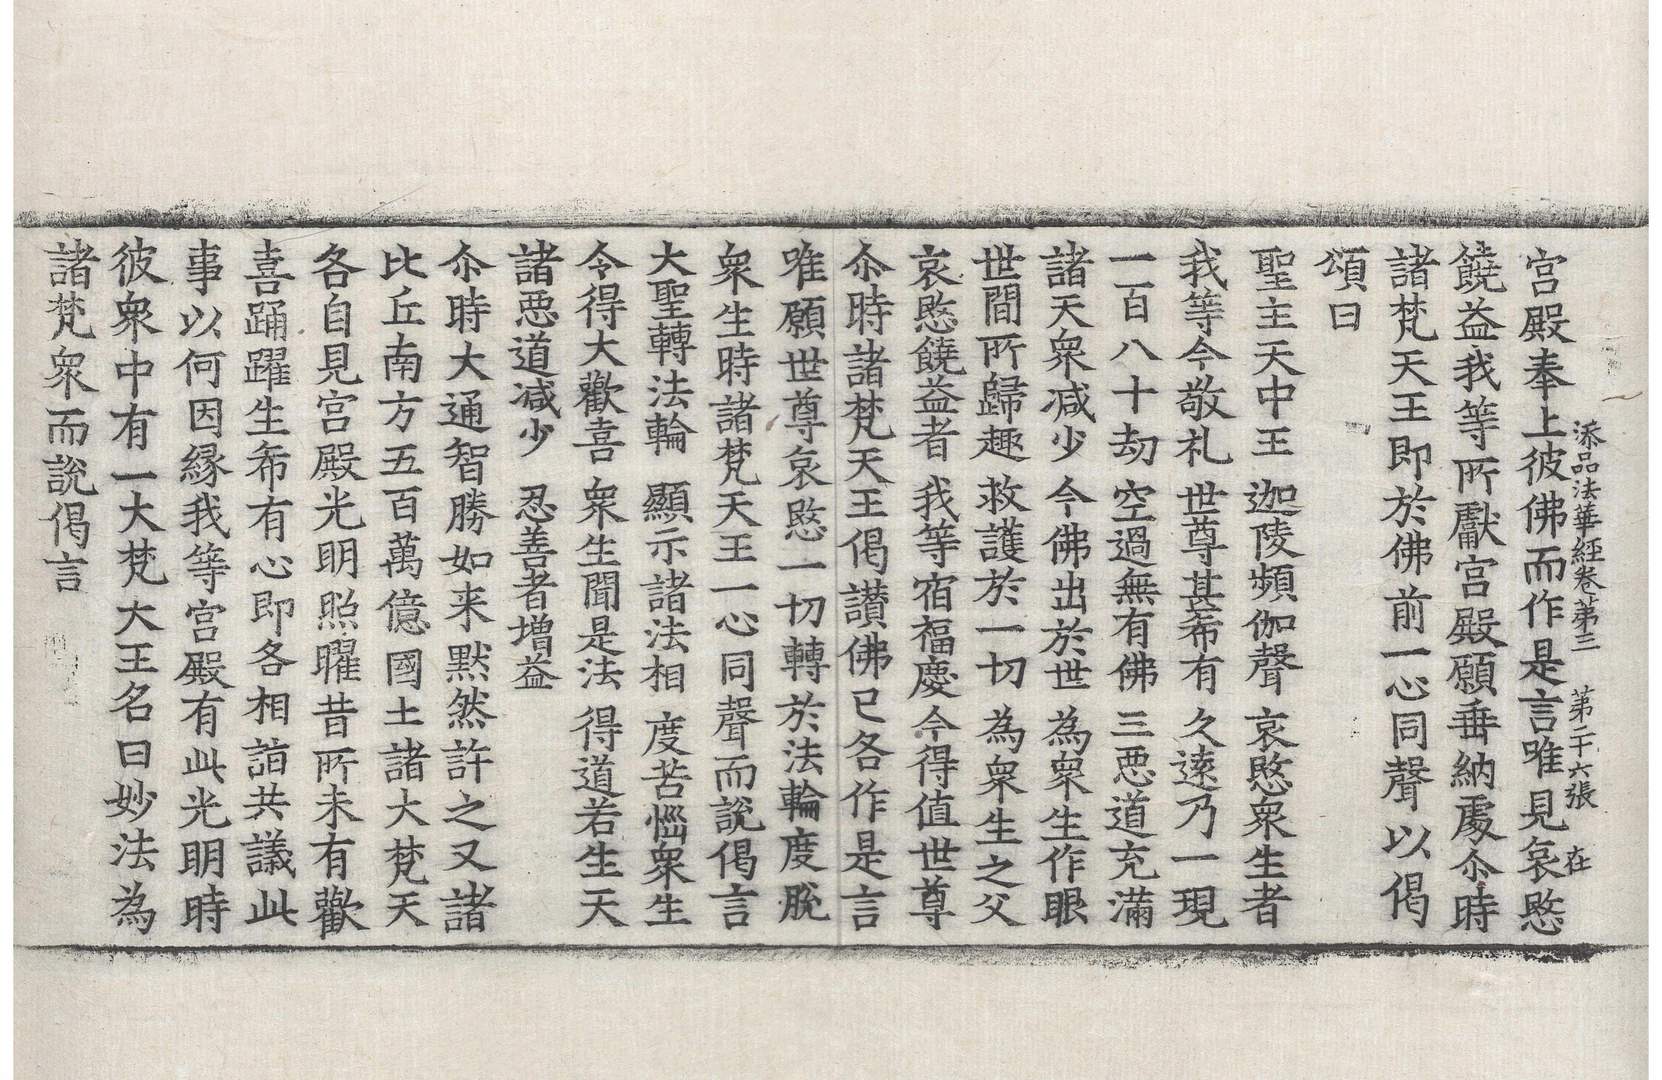 添品法華經卷第三　第二十六張　在
宮殿奉上彼佛而作是言唯見哀愍
饒益我等所獻宮殿願垂納處尒時
諸梵天王即於佛前一心同聲以偈
頌曰
聖主天中王　迦陵頻伽聲　哀愍衆生者
我等今敬礼　世尊甚希有　久遠乃一現
一百八十劫　空過無有佛　三惡道充滿
諸天衆减少　今佛出於世　為衆生作眼
世間所歸趣　救護於一切　為衆生之父
哀愍饒益者　我等宿福慶　今得值世尊
尒時諸梵天王偈讃佛已各作是言
唯願世尊哀愍一切轉於法輪度脫
衆生時諸梵天王一心同聲而說偈言
大聖轉法輪　顯示諸法相　度苦惱衆生
令得大歡喜　衆生聞是法　得道若生天
諸惡道减少　忍善者增益
尒時大通智勝如来默然許之又諸
比丘南方五百萬億國土諸大梵天
各自見宮殿光明照曜昔所未有歡
喜踊躍生希有心即各相詣共議此
事以何因縁我等宮殿有此光明時
彼衆中有一大梵天王名曰妙法為
諸梵衆而說偈言